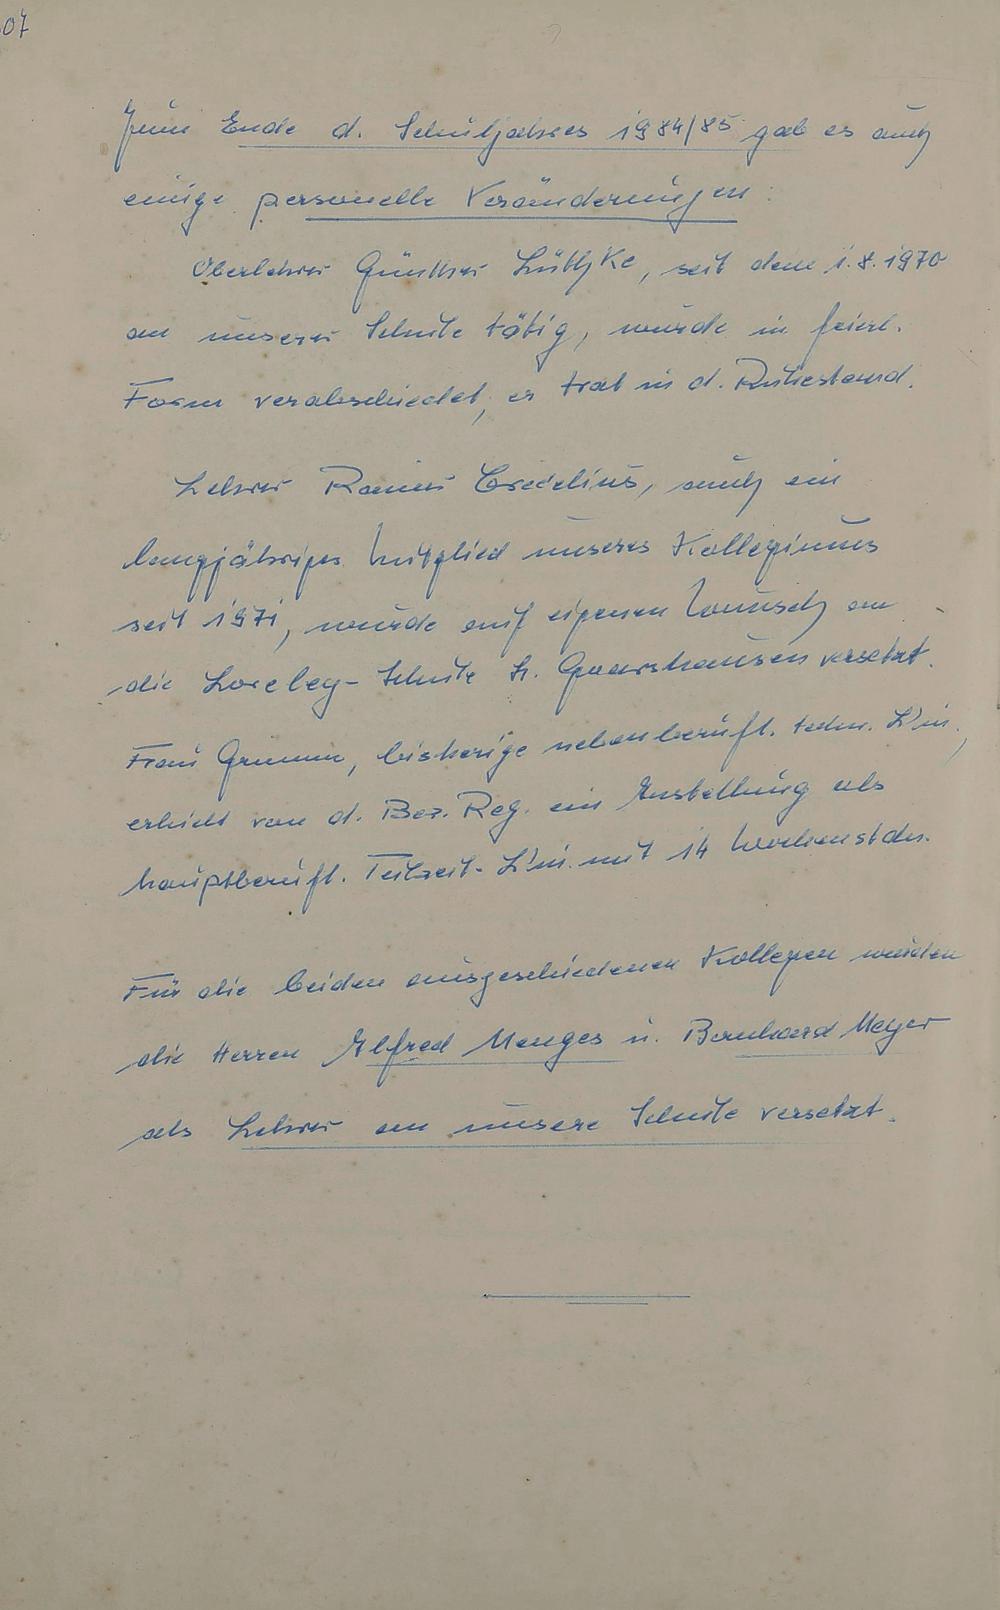 07
Zum Ende d. Schuljahres 1984/85 gab es auch
einige personelle Veränderungen:
Oberlehrer Günther Lüthke, seit dem 1.8.1970
an unserer Schule tätig, wurde in feierl.
Form verabschiedet, er trat in d. Ruhestand.
Lehrer Rainer Credelius, auch ein
langjähriges Mitglied unseres Kollegiums
seit 1971, wurde auf eigenen Wunsch an
die Loreley-Schule St. Goarshausen versetzt.
Frau Grumm, bisherige nebenberufl. techn. L'in,
erhielt von d. Bez. Reg. ein Anstellung als
hauptberufl. Teilzeit-L'in. mit 14 Wochenstdn.
Für die beiden ausgeschiedenen Kollegen wurden
die Herren Alfred Menges u. Bernhard Meyer
als Lehrer an unsere Schule versetzt.